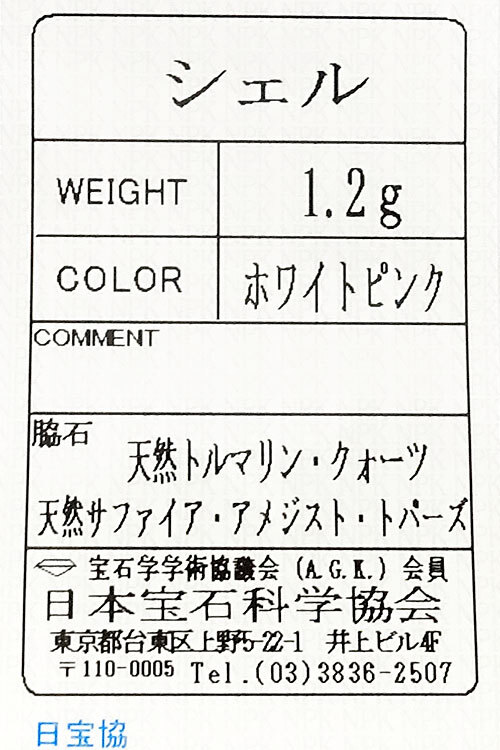 シェル
WEIGHT 1.2g
COLOR ホワイトピンク
COMMENT
脇石 天然トルマリン・クォーツ
天然サファイア・アメジスト・トパーズ
宝石学学術協議会 (A.G.K.) 会員
日本宝石科学協会
東京都台東区上野5-22-1 井上ビル4F
〒110-0005 Tel.(03)3836-2507
日宝協